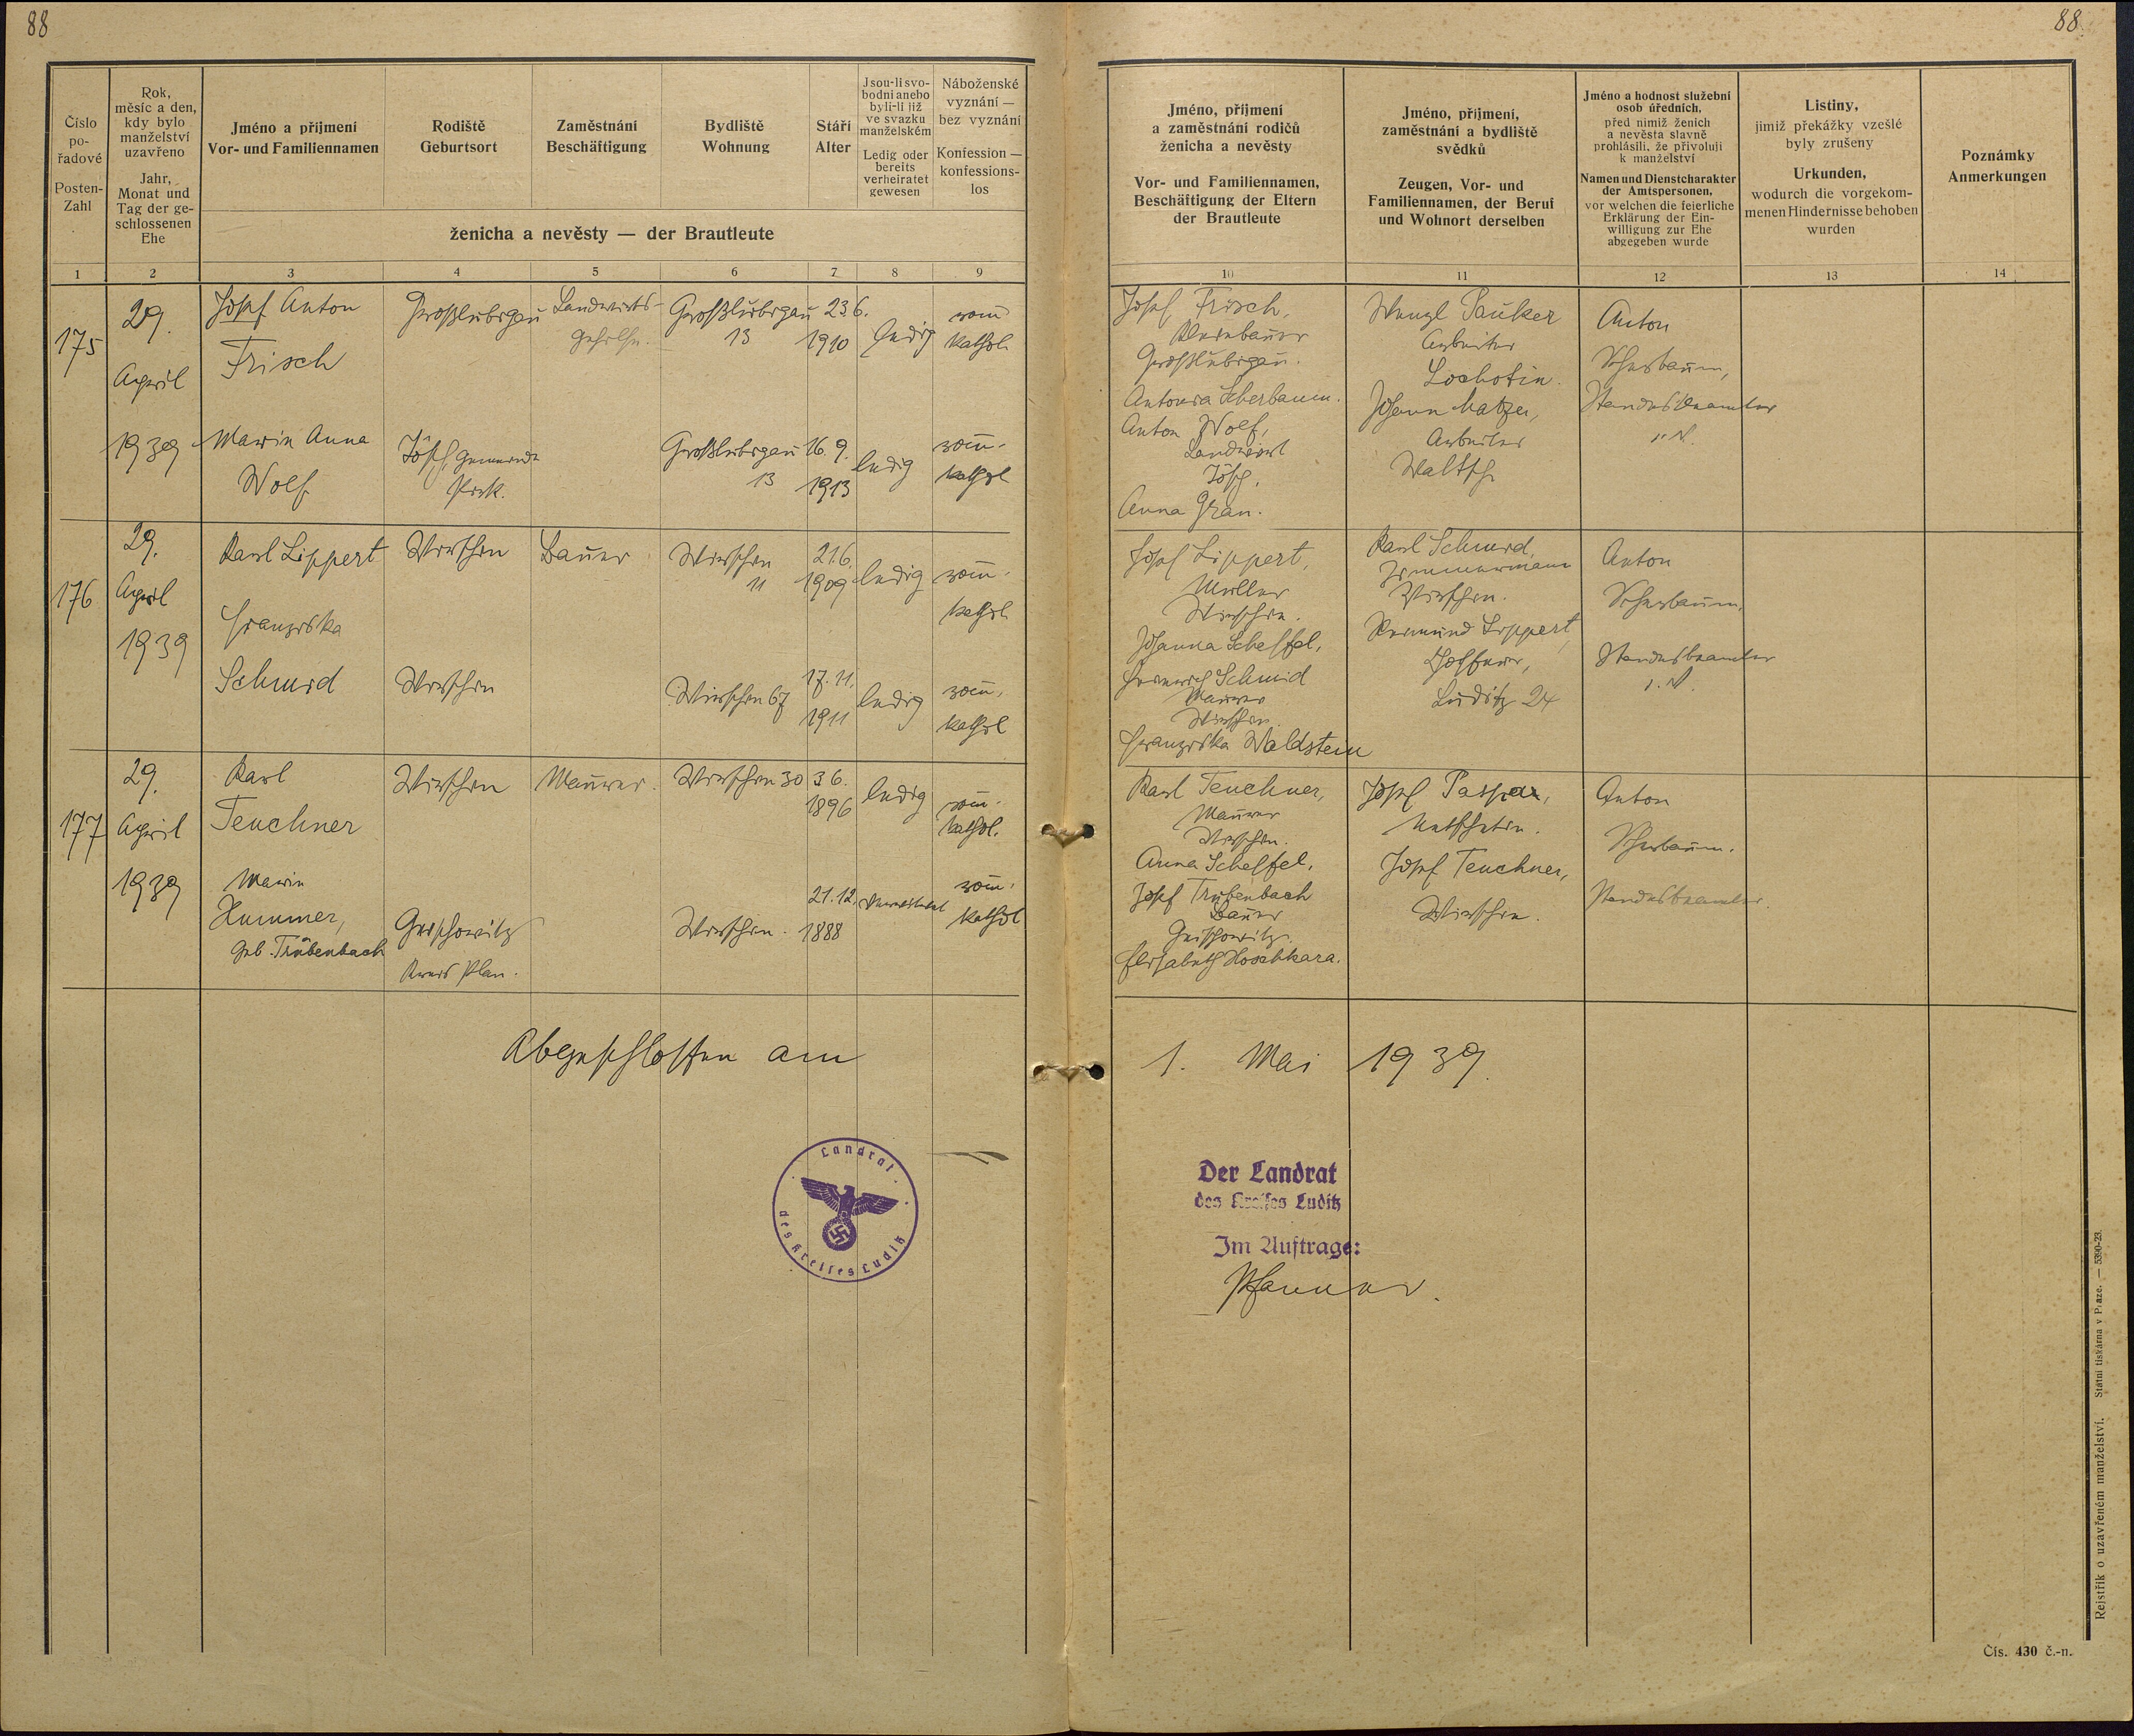 88
88.
Číslo
po-
řadové
Posten-
Zahl
Rok,
měsíc a den,
kdy bylo
manželství
uzavřeno
Jahr,
Monat und
Tag der ge-
schlossenen
Ehe
Jméno a příjmení
Vor- und Familiennamen
Rodiště
Geburtsort
Zaměstnání
Beschäftigung
Bydliště
Wohnung
Stáří
Alter
Jsou-li svo-
bodni anebo
byli-li již
ve svazku
manželském
Ledig oder
bereits
verheiratet
gewesen
Náboženské
vyznání —
bez vyznání
Konfession —
konfessions-
los
ženicha a nevěsty — der Brautleute
Jméno, příjmení
a zaměstnání rodičů
ženicha a nevěsty
Vor- und Familiennamen,
Beschäftigung der Eltern
der Brautleute
Jméno, příjmení,
zaměstnání a bydliště
svědků
Zeugen, Vor- und
Familiennamen, der Beruf
und Wohnort derselben
Jméno a hodnost služební
osob úředních,
před nimiž ženich
a nevěsta slavně
prohlásili, že přivolují
k manželství
Namen und Dienstcharakter
der Amtspersonen,
vor welchen die feierliche
Erklärung der Ein-
willigung zur Ehe
abgegeben wurde
Listiny,
jimiž překážky vzešlé
byly zrušeny
Urkunden,
wodurch die vorgekom-
menen Hindernisse behoben
wurden
Poznámky
Anmerkungen
1 2 3 4 5 6 7 8 9
10 11 12 13 14
175
29.
April
1939
Josef Anton
Frisch
Großlubigau
Landwirts-
gehilfe.
Großlubigau
13
23.6.
1910
ledig
röm
kathol.
Marie Anna
Wolf
Gemeinde
Großlubigau
13
16.9.
1913
ledig
röm.
kathol
Josef Frisch,
Großlubigau.
Antonia Scherbaum.
Anton Wolf,
Landwirt
Anna Gran.
Wenzl Pauker
Arbeiter
Lochotin.
Johann Matzer,
Arbeiter
Waltsch
Anton
Scherbaum,
Standesbeamter
i. V.
176
29.
April
1939
Karl Lippert
Wirschin
Bauer
Wirschin
11
21.6.
1909
ledig
röm.
kathol
Franziska
Schmid
Wirschin
Wirschin 67
17.11.
1911
ledig
röm.
kathol
Josef Lippert,
Müller
Wirschin.
Johanna Scheffel,
Heinrich Schmid
Maurer
Wirschin.
Franziska Waldstein
Karl Schmid,
Zimmermann
Wirschin.
Lippert,
Luditz 24
Anton
Scherbaum,
Standesbeamter
i. V.
177
29.
April
1939
Karl
Teuchner
Wirschin
Maurer.
Wirschin 30
3.6.
1896
ledig
röm.
kathol.
Marie
Hummer,
geb. Trübenbach
Geischowitz
Kreis Plan.
Wirschin.
21.12.
1888
röm.
kathol
Karl Teuchner,
Maurer
Wirschin.
Anna Scheffel.
Josef Trübenbach
Bauer
Geischowitz.
Elisabeth Hoschkara.
Josef
Josef Teuchner,
Wirschin.
Anton
Scherbaum.
Standesbeamter.
Abgeschlossen am
1. Mai 1939.
Landrat
des Kreises Luditz
Der Landrat
des Kreises Luditz
Im Auftrage:
Rejstřík o uzavřeném manželství. Státní tiskárna v Praze. — 5390-23.
Čís. 430 č.-n.